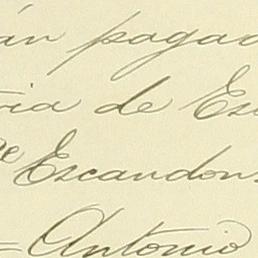 án pagad
ria de Es
de Escandon
= Antonio